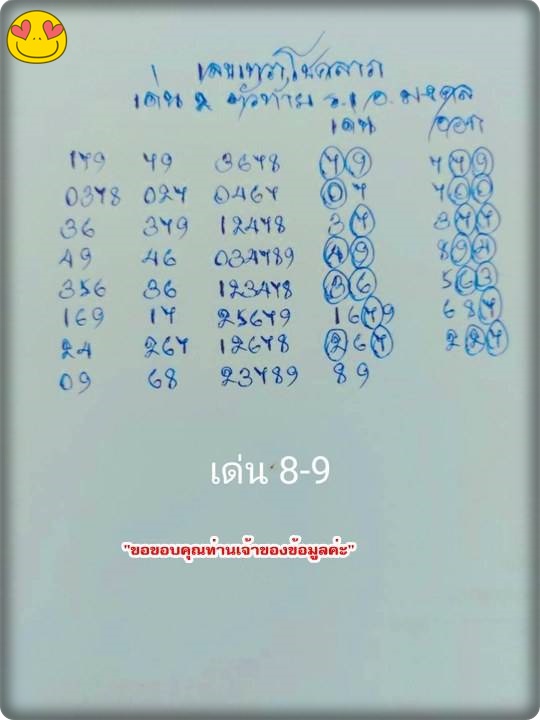 เด่น 2 ตัวท้าย ร.1 อ. มงคล
เด่น ออก
179 79 3678 79 779
0378 027 0467 07 700
36 379 12478 37 377
49 46 034789 49 894
356 36 123478 36 563
169 17 25679 1679 687
24 267 12678 267 227
09 68 23789 89
เด่น 8-9
"ขอขอบคุณท่านเจ้าของข้อมูลค่ะ"